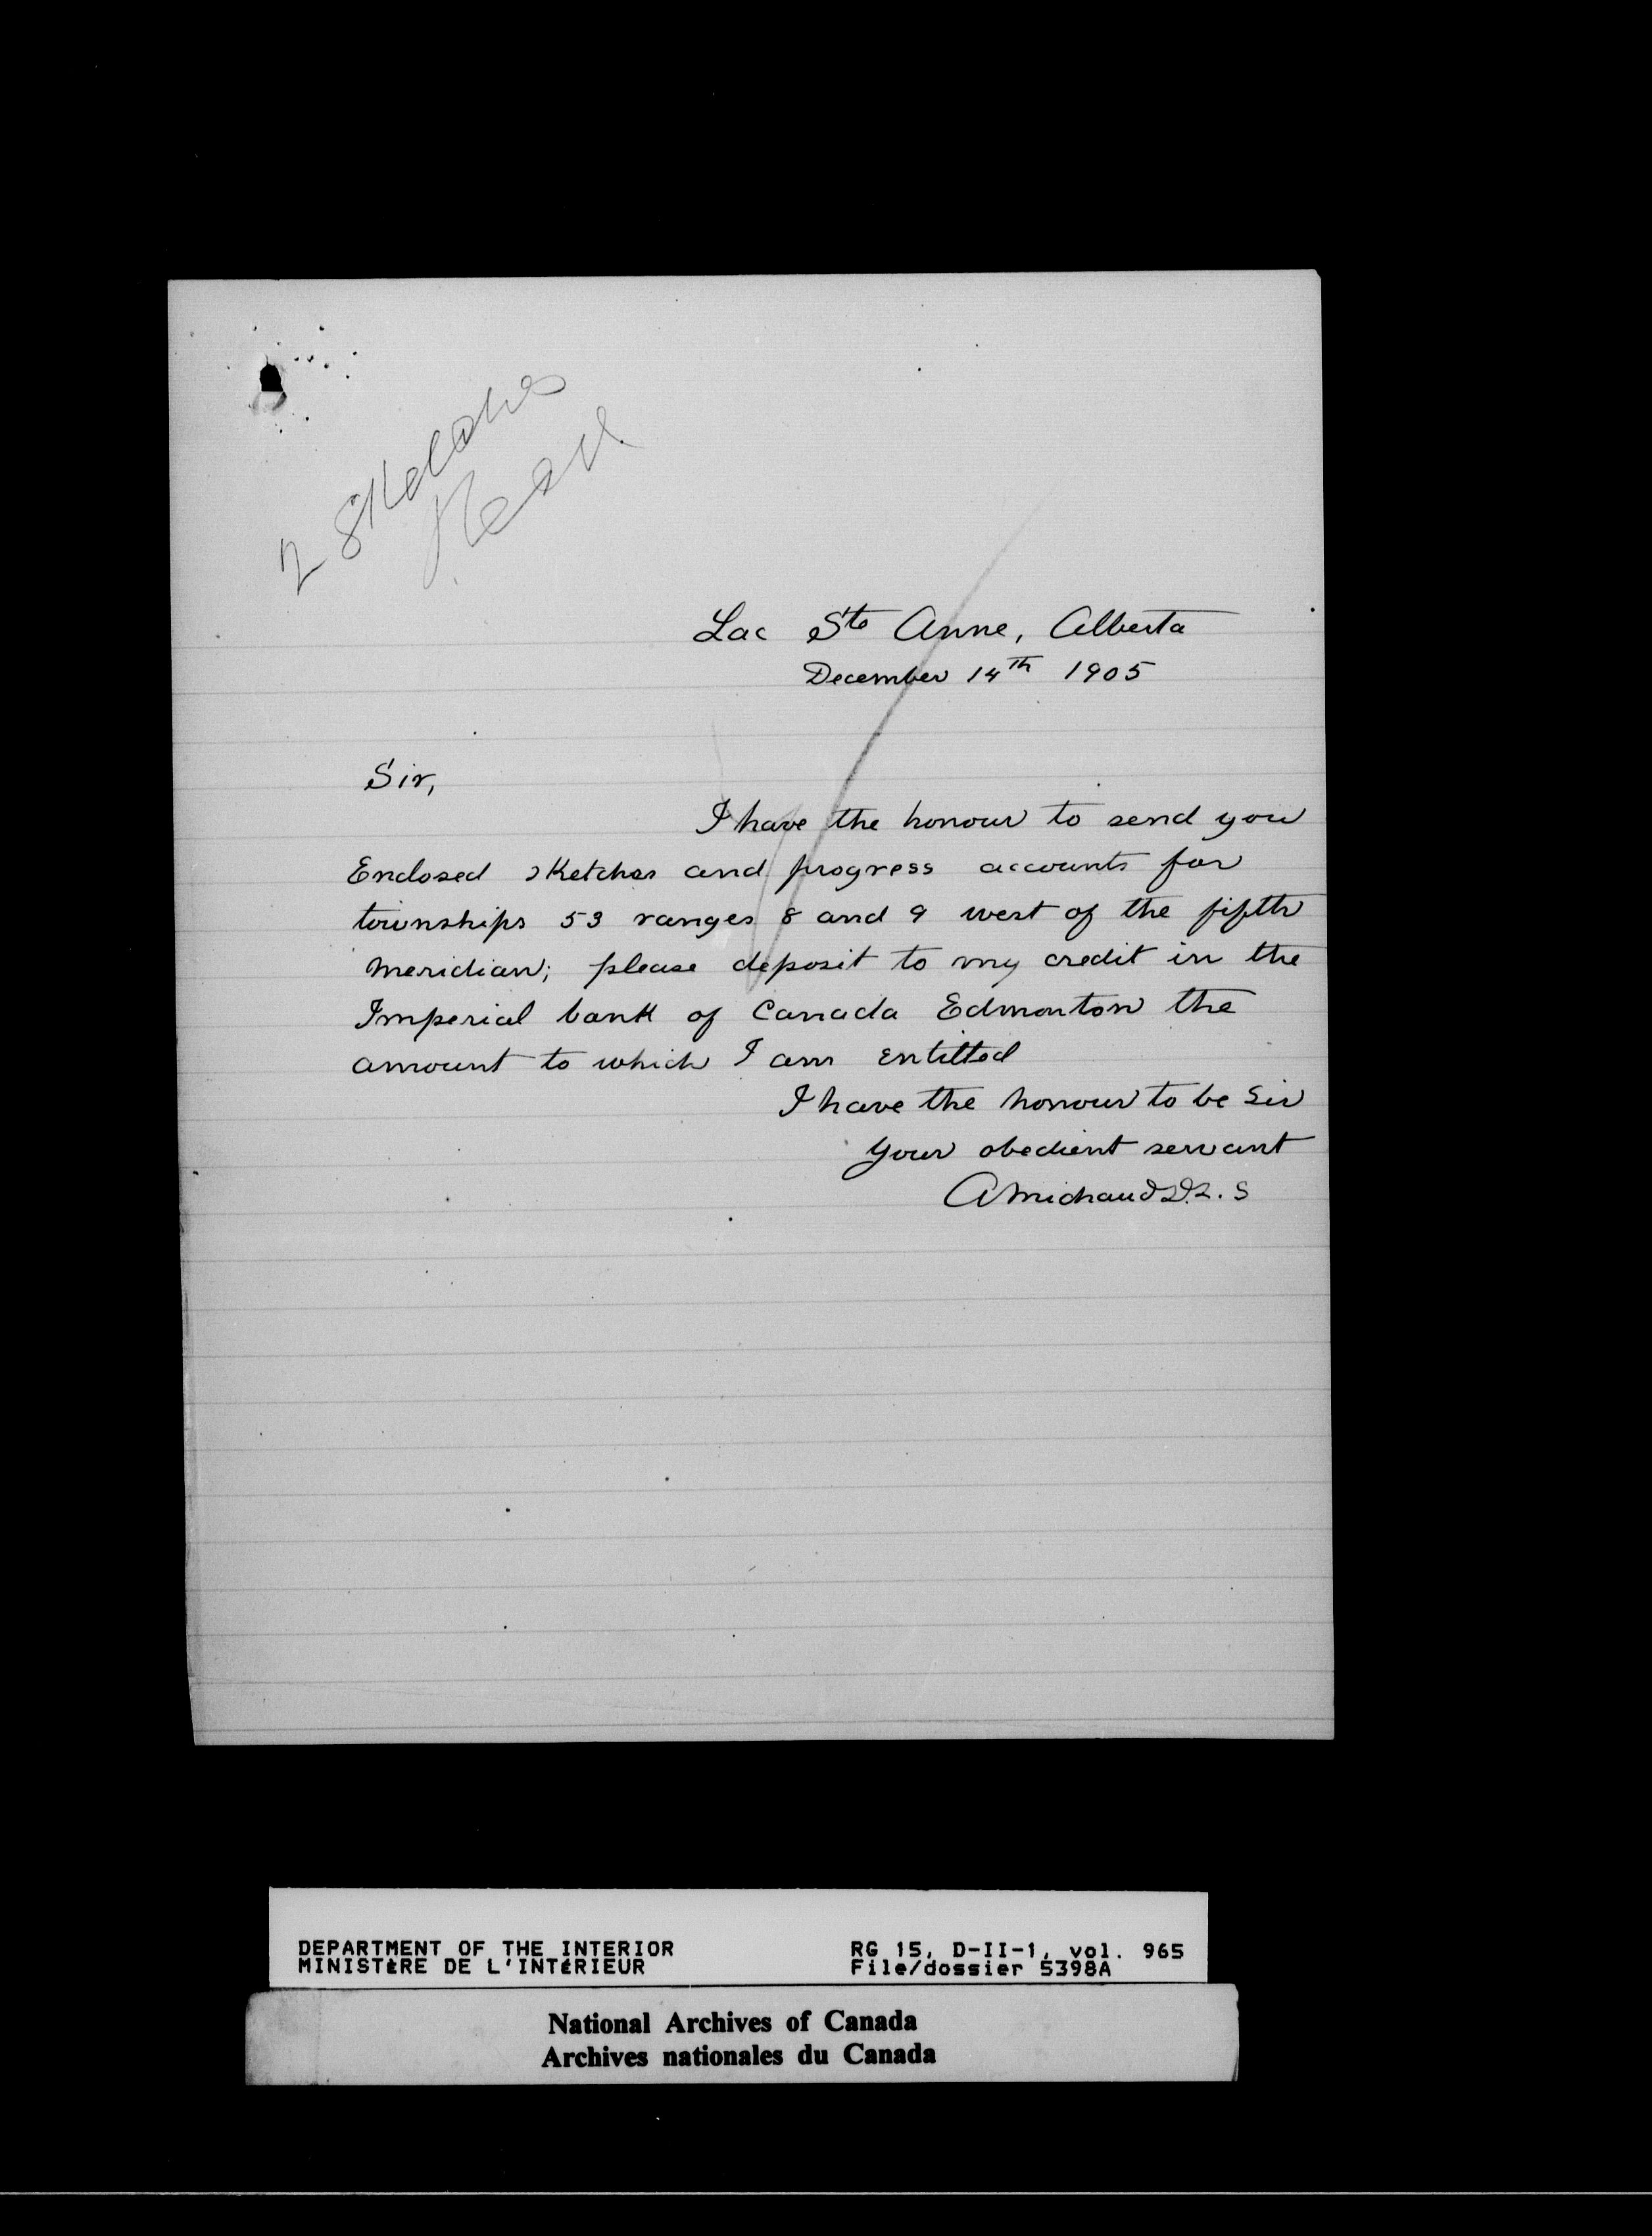 2 sketches
Lac Ste Anne, Alberta
December 14th 1905
Sir,
I have the honour to send you
Enclosed sketches and progress accounts for
townships 53 ranges 8 and 9 west of the fifth
meridian; please deposit to my credit in the
Imperial bank of Canada Edmonton the
amount to which I am entitled
I have the honour to be Sir
your obedient servant
A Michaud D.L.S
DEPARTMENT OF THE INTERIOR RG 15, D-II-1, vol. 965
MINISTÈRE DE L'INTÉRIEUR File/dossier 5398A
National Archives of Canada
Archives nationales du Canada